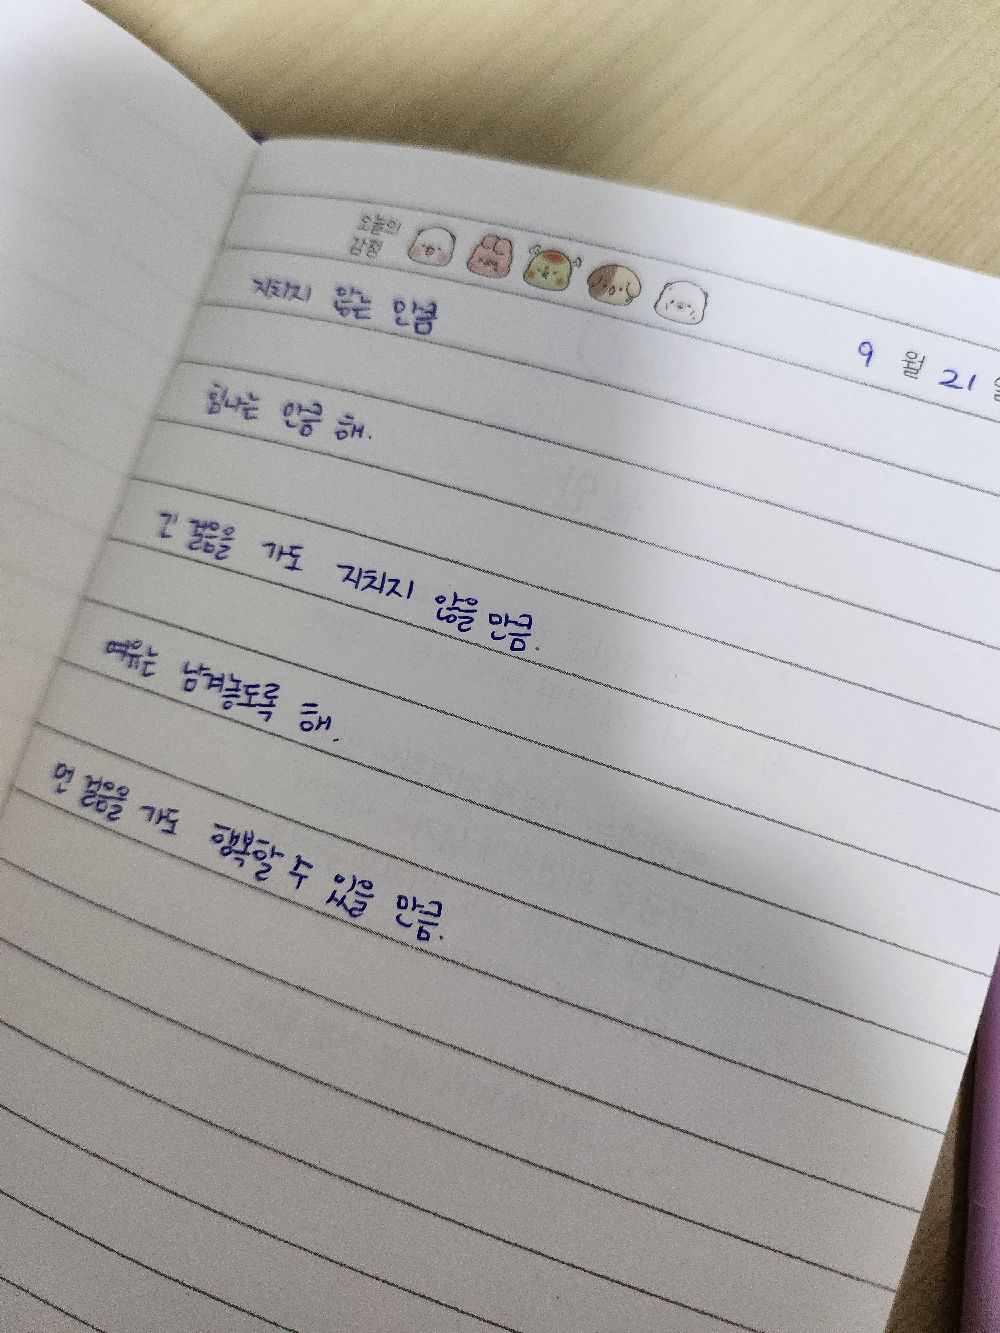 오늘의
감정
9 월 21
지치지 않는 만큼
힘나는 만큼 해.
긴 걸음을 가도 지치지 않을 만큼.
여유는 남겨놓도록 해.
먼 걸음을 가도 행복할 수 있을 만큼.